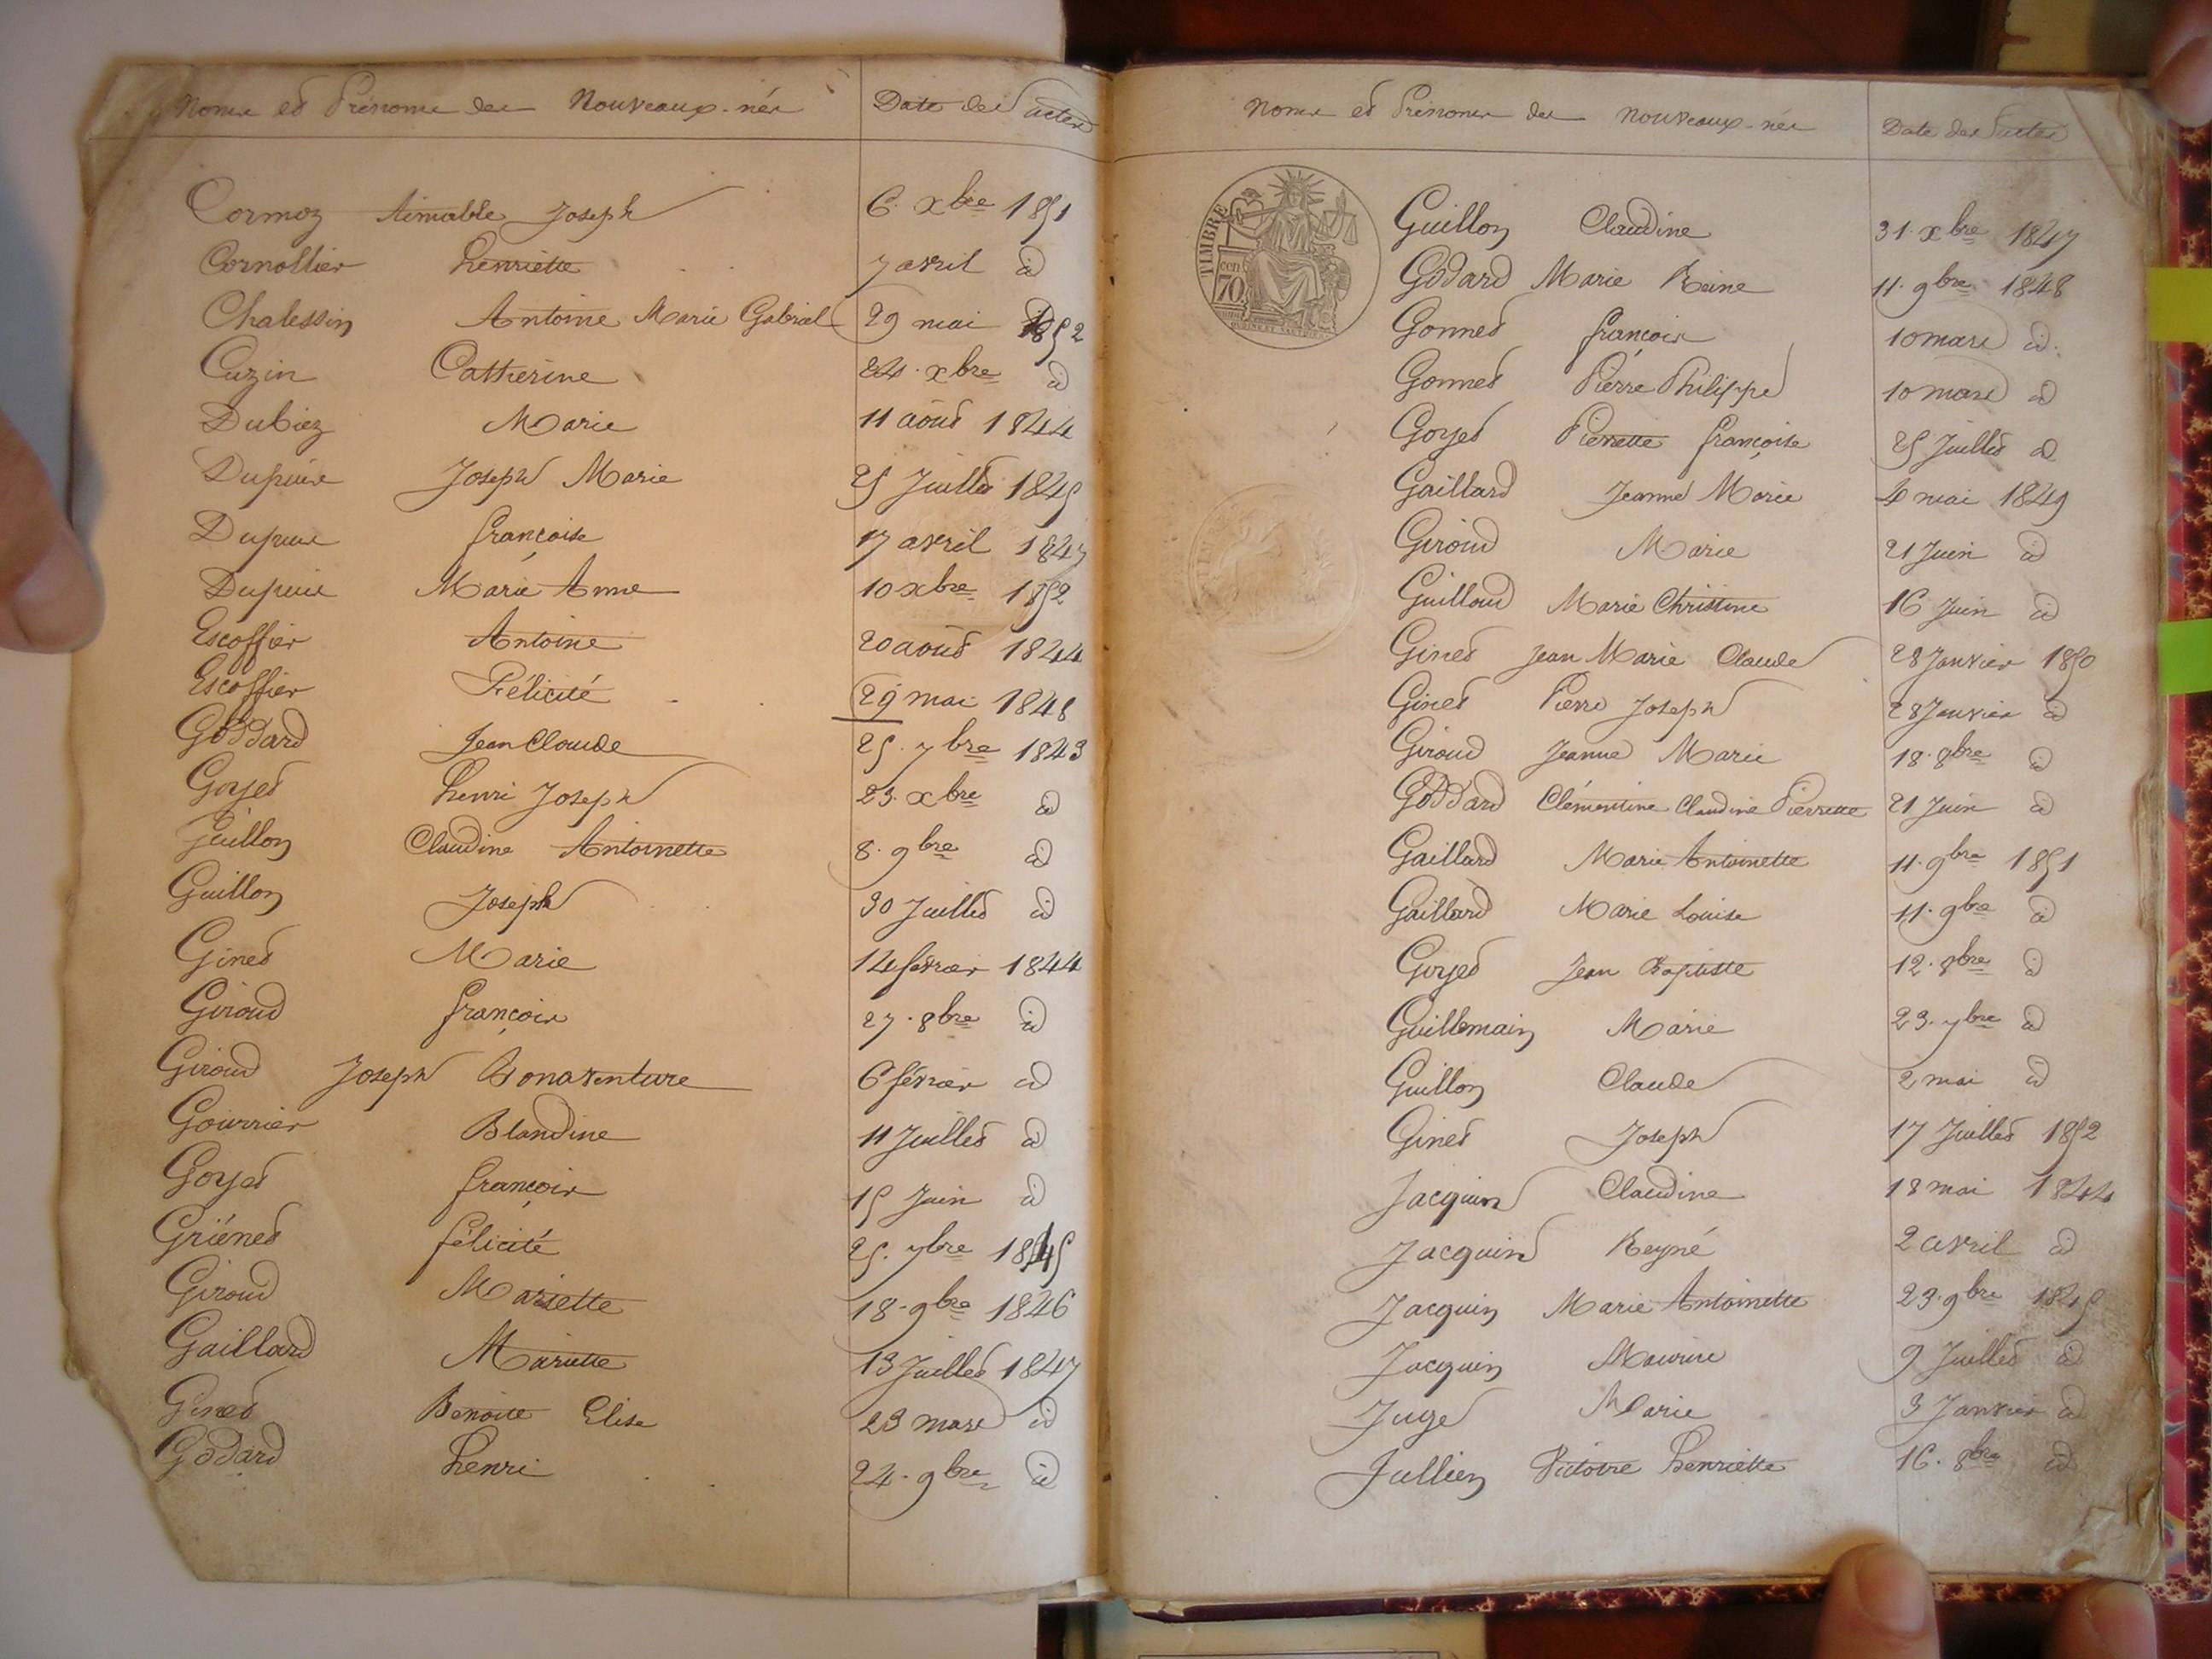 Noms et Prénoms des Nouveaux-nés Date des actes
Cormoz Aimable Joseph 6. xbre 1851
Cornollier henriette 7 avril id
Chalessin Antoine Marie Gabriel 29 mai 1852
Cuzin Catherine 24. xbre id
Dubiez Marie 11 août 1844
Dupuis Joseph Marie 25 Juillet 1845
Dupuis françoise 17 avril 1847
Dupuis Marie Anne 10 xbre 1852
Escoffier Antoine 20 août 1844
Escoffier Félicité 29 mai 1848
Goddard Jean Claude 25. 7bre 1843
Goyet henri Joseph 23. xbre id
Guillon Claudine Antoinette 8. 9bre id
Guillon Joseph 30 Juillet id
Ginet Marie 14 février 1844
Giroud françois 27. 8bre id
Giroud Joseph Bonaventure 6 février id
Gourrier Blandine 11 Juillet id
Goyet françois 15 Juin id
Griénet félicité 25. 7bre 1845
Giroud Mariette 18. 9bre 1846
Gaillard Mariette 13 Juillet 1847
Ginet Benoite Elise 23 mars id
Godard henri 24. 9bre id
Noms et Prénoms des Nouveaux-nés Date des actes
TIMBRE
cen
70
Guillon Claudine 31. xbre 1847
Godard Marie Reine 11. 9bre 1848
Gonnet françois 10 mars id.
Gonnet Pierre Philippe 10 mars id
Goyet Pierrette françoise 25 Juillet id
Gaillard Jeanne Marie 4 mai 1849
Giroud Marie 21 Juin id
Guilloud Marie Christine 16 Juin id
Ginet Jean Marie Claude 28 Janvier 1850
Ginet Pierre Joseph 28 Janvier id
Giroud Jeanne Marie 18. 8bre id
Goddard Clémentine Claudine Pierrette 21 Juin id
Gaillard Marie Antoinette 11. 9bre 1851
Gaillard Marie Louise 11. 9bre id
Goyet Jean Baptiste 12. 8bre id
Guillemain Marie 23. 7bre id
Guillon Claude 2 mai id
Ginet Joseph 17 Juillet 1852
Jacquin Claudine 18 mai 1844
Jacquin Reyné 2 avril id
Jacquin Marie Antoinette 23. 9bre 1845
Jacquin Maurice 9 Juillet id
Juge Marie 3 Janvier id
Jullien Victoire henriette 16. 8bre id